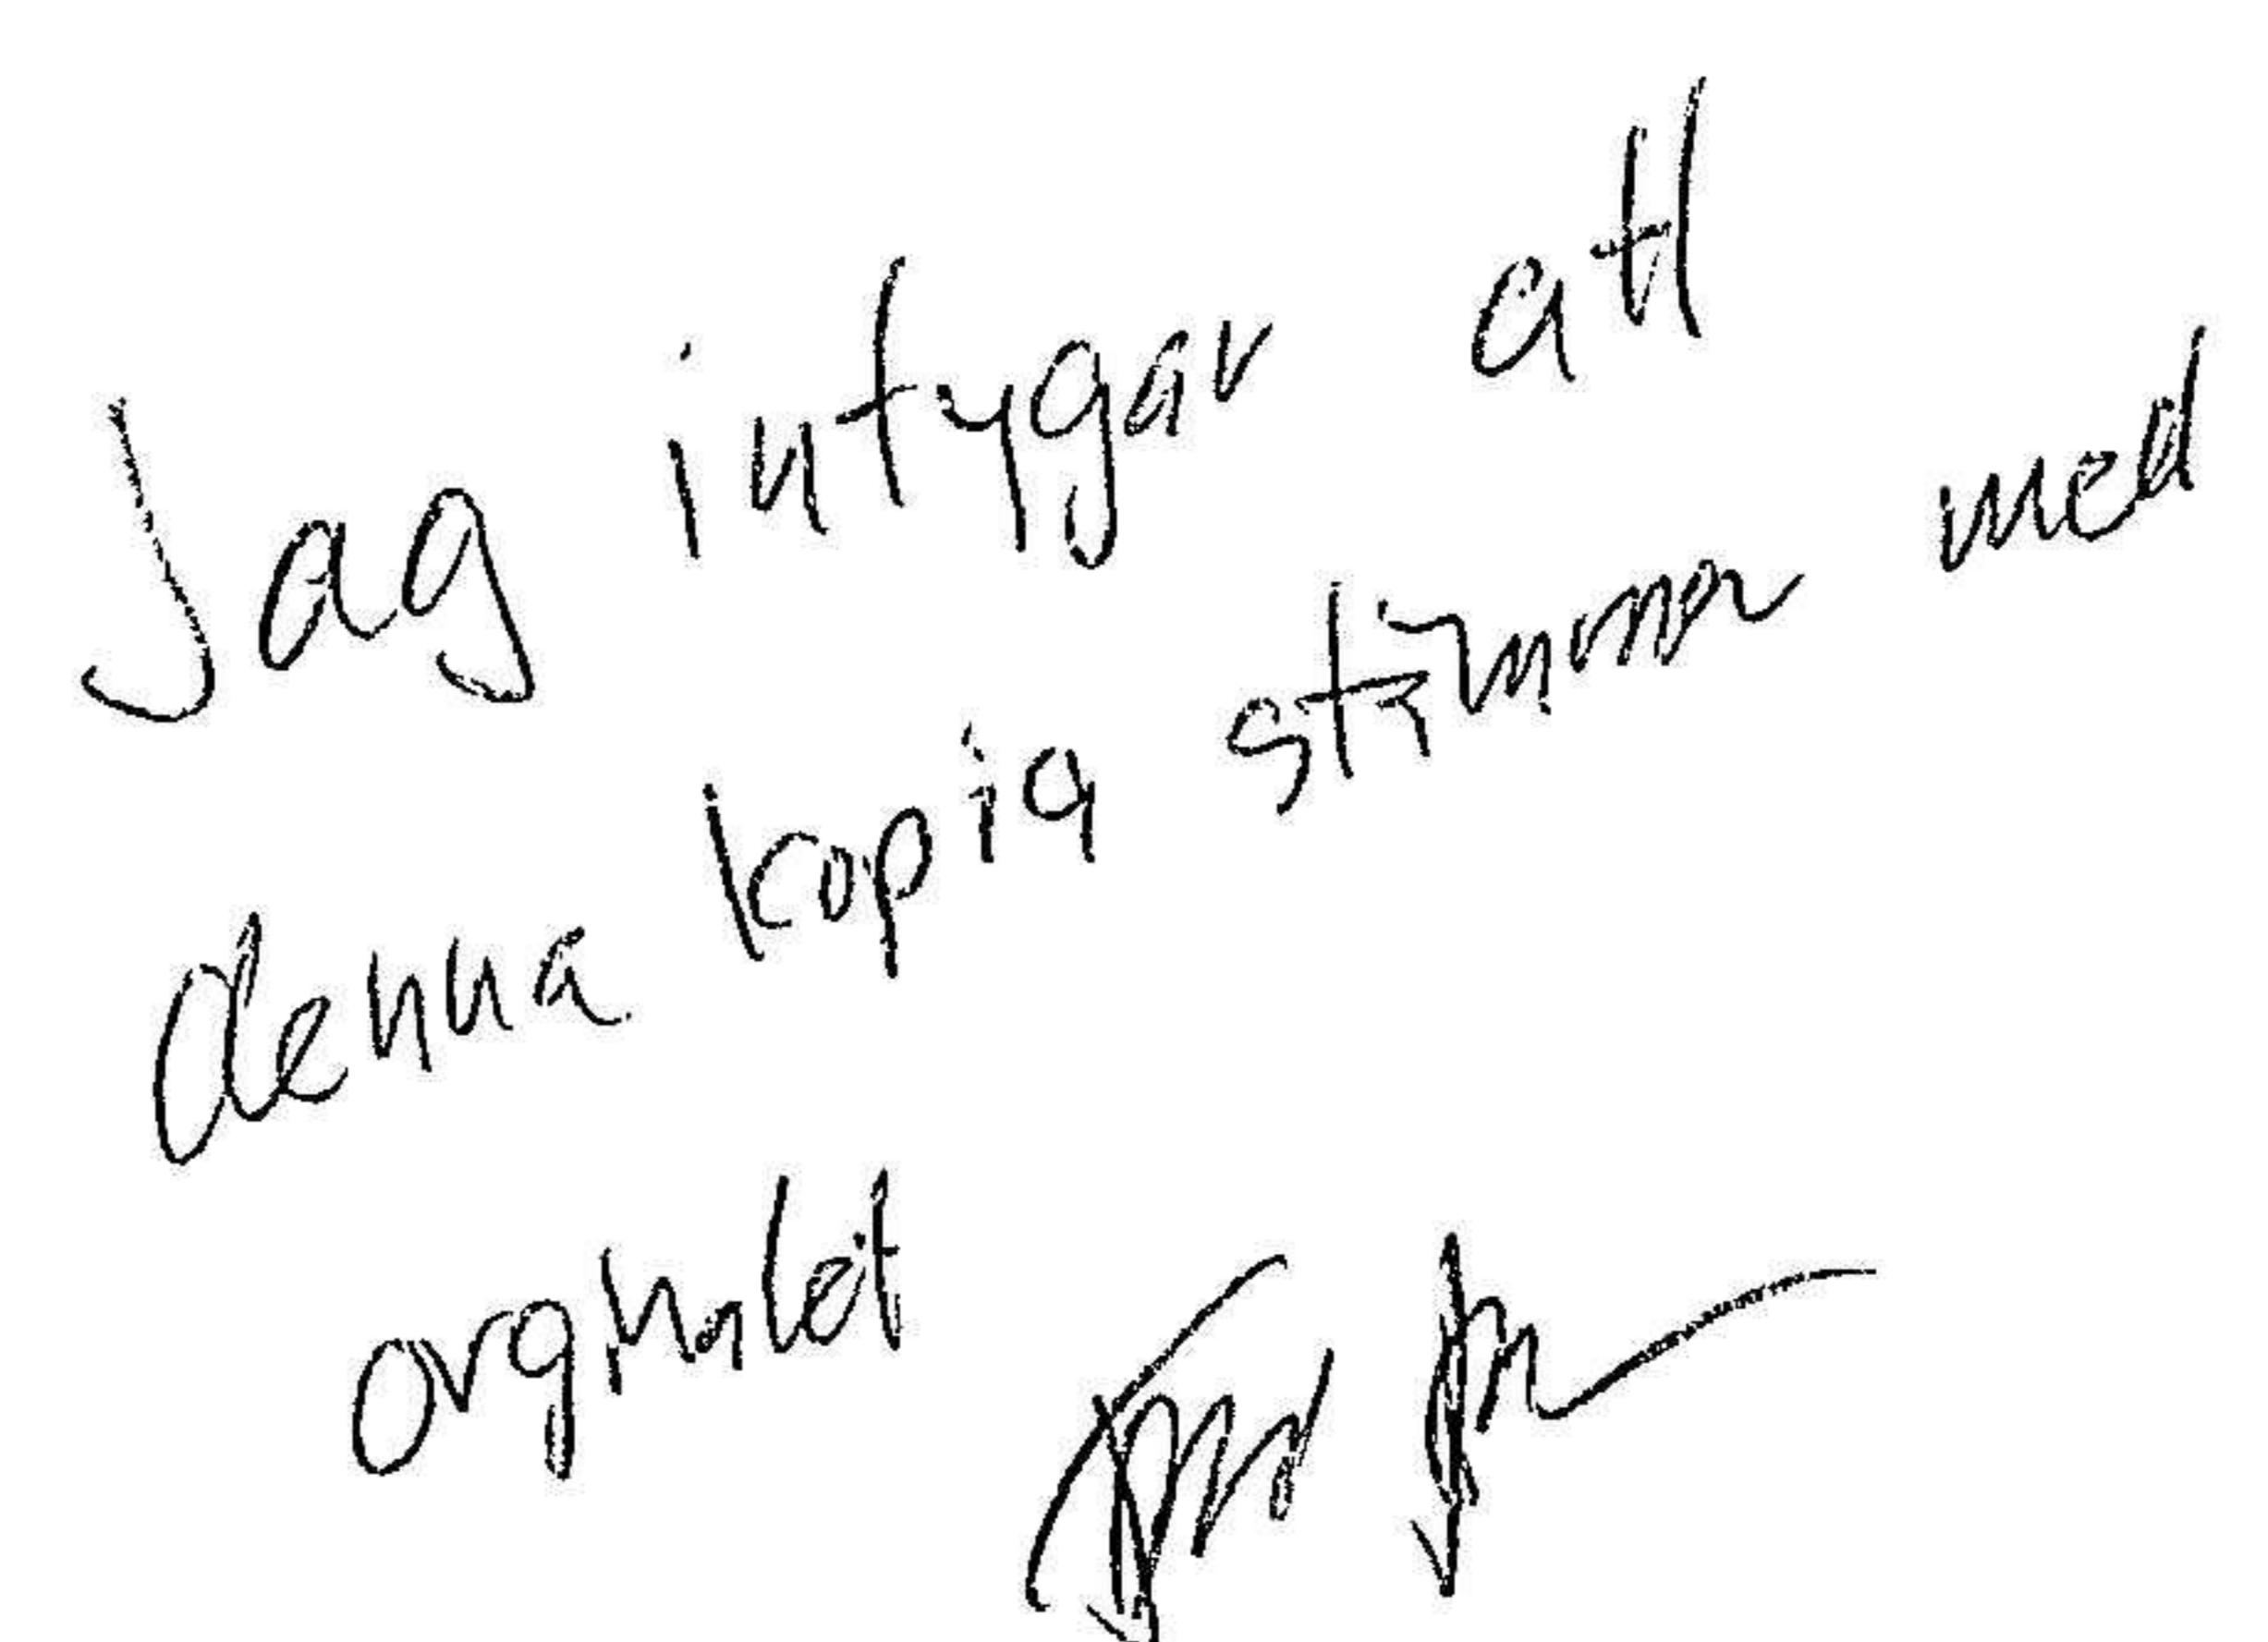 Jag intygar att
denna kopia stämmer med
orginalet